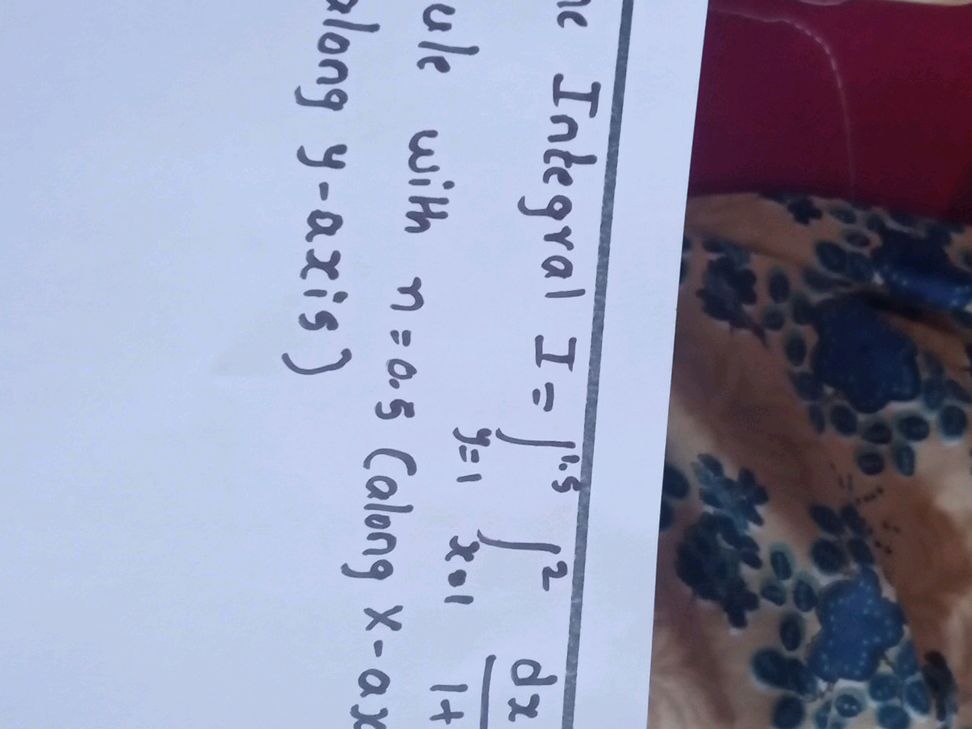 Integral I = ∫ 1.5 y=1 ∫ 2 x=1 dx 1+
with n=0.5 (along x-ax
along y-axis)